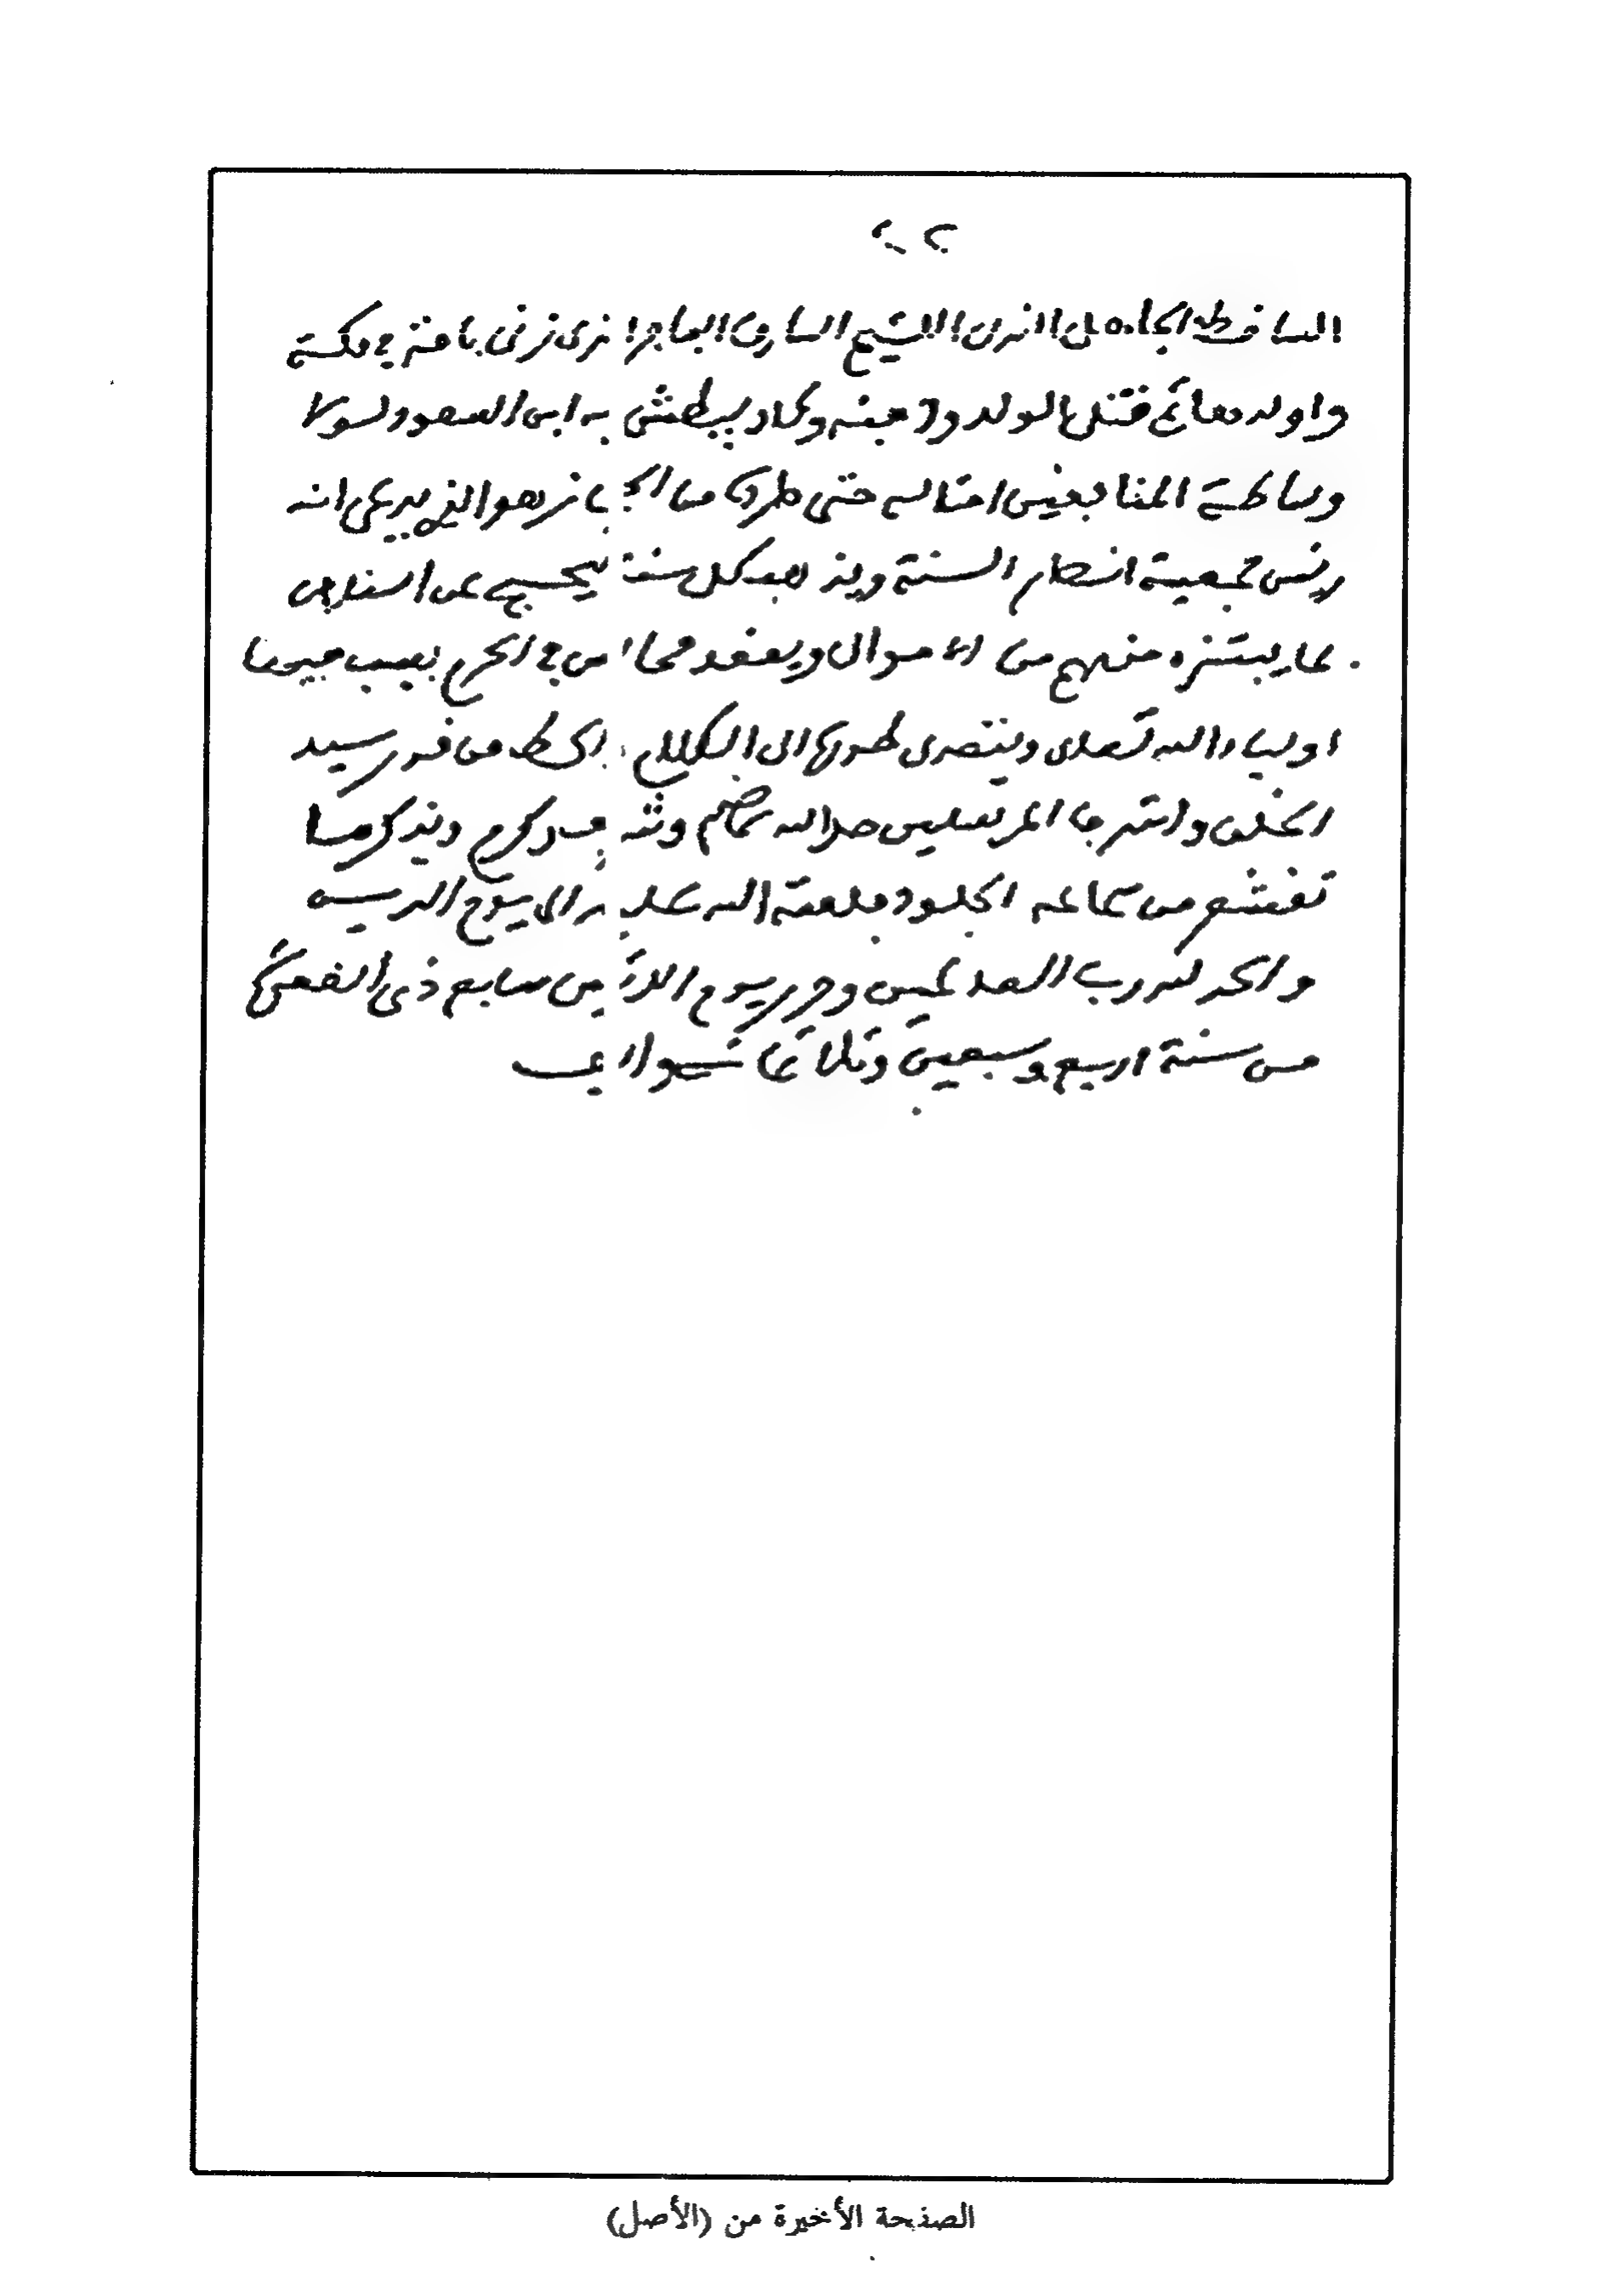 الساقط الجاهل النذل الشيخ السارق الفاجر زنى بامرة في مكة
واولدها ثم قتل الولد ودفنه وكاد يبطش به ابن السعود لولا
وساطة المنافقين امثاله حتى طرده من الحجاز وهو الذي يدعي انه
رئيس جمعية انصار السنة ويذهب كل سنة ليحج عن الناس
بما يبتزه منهم من الاموال ويعقد مجالس في الحرم بسب فيها
اولياء الله تعالى ويتصدى الى الحط من قدر سيد
الخلق والمرسلين صلى الله عليه وسلم ويذكر ما
تقشعر من سماعه الجلود فلعنة الله عليه الى يوم الدين
والحمد لله رب العالمين وحرر يوم سابع ذي القعدة
من سنة اربع وسبعين وثلاثمائة والف
الصفحة الأخيرة من (الأصل)